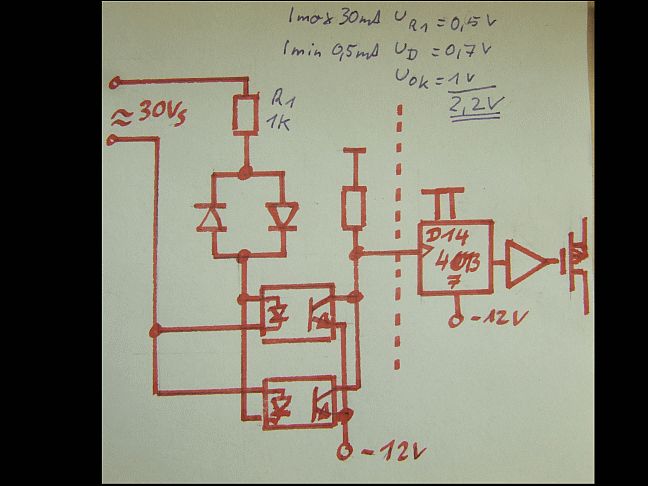 Imax 30mA U R1 = 0,5V
Imin 0,5mA U D = 0,7V
U OK = 1V
2,2V
R1
1K
≈ 30Vs
D14
4013
7
-12V
-12V